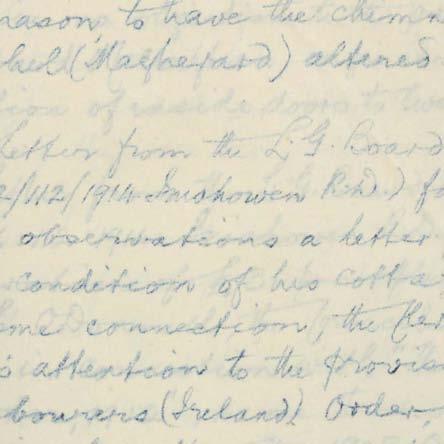 mason, to have the chimn
bell (Magherard) altered
tion of inside doors to two
Letter from the L. G. Board
2/112/1914 Inishowen R.d.) fo
observations a letter
condition of his cotta
me connection, the Cler
s attention to the provis
bourers (Ireland) Order,